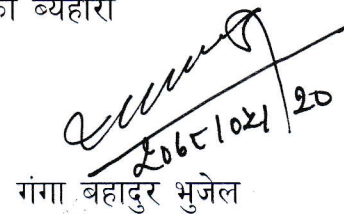 का ब्यहोरा
२०६८/०५/२०
गंगा बहादुर भुजेल